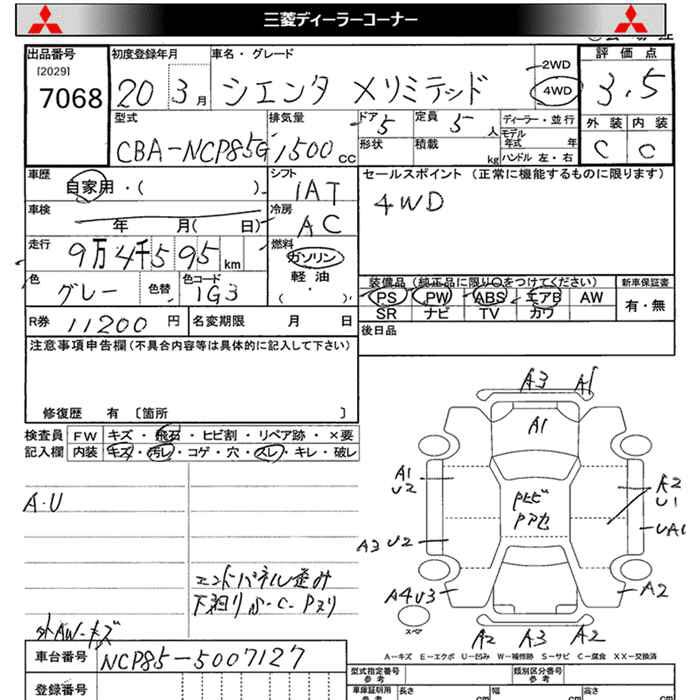 三菱ディーラーコーナー
出品番号 初度登録年月 車名・グレード 評価点
[2029]
7068 20 3月 シエンタ Xリミテッド 2WD 4WD 3.5
型式 排気量 ドア 定員 ディーラー・並行 外装 内装
CBA-NCP85G 1500cc 5 5人 モデル年式 年 C C
形状 積載 kg ハンドル 左・右
車歴 シフト セールスポイント (正常に機能するものに限ります)
自家用・( ) IAT 4WD
車検 冷房
年 月( 日) AC
走行 燃料
9万4千595km ガソリン
軽油
( ・ )
色 色替 色コード 装備品 (純正品に限り○をつけてください) 新車保証書
グレー 1G3 PS PW ABS エアB AW 有・無
SR ナビ TV カワ
R券 11200円 名変期限 月 日 後日品
注意事項申告欄(不具合内容等は具体的に記入して下さい)
修復歴 有 〔箇所 〕
検査員 FW キズ・飛石・ヒビ割・リペア跡・×要
記入欄 内装 キズ・汚レ・コゲ・穴・スレ・キレ・破レ
A・U
下廻り
外AW-キズ
A3 A1
A1
A1
U2
A2
U1
UA1
A3 U2
A4U3
A2
スペア
A2 A3 A2
A-キズ E-エクボ U-凹み W-補修跡 S-サビ C-腐食 XX-交換済
車台番号 NCP85-5007127
登録番号
型式指定番号 参考 類別区分番号 参考
車庫証明用 参考 長さ cm 幅 cm 高さ cm